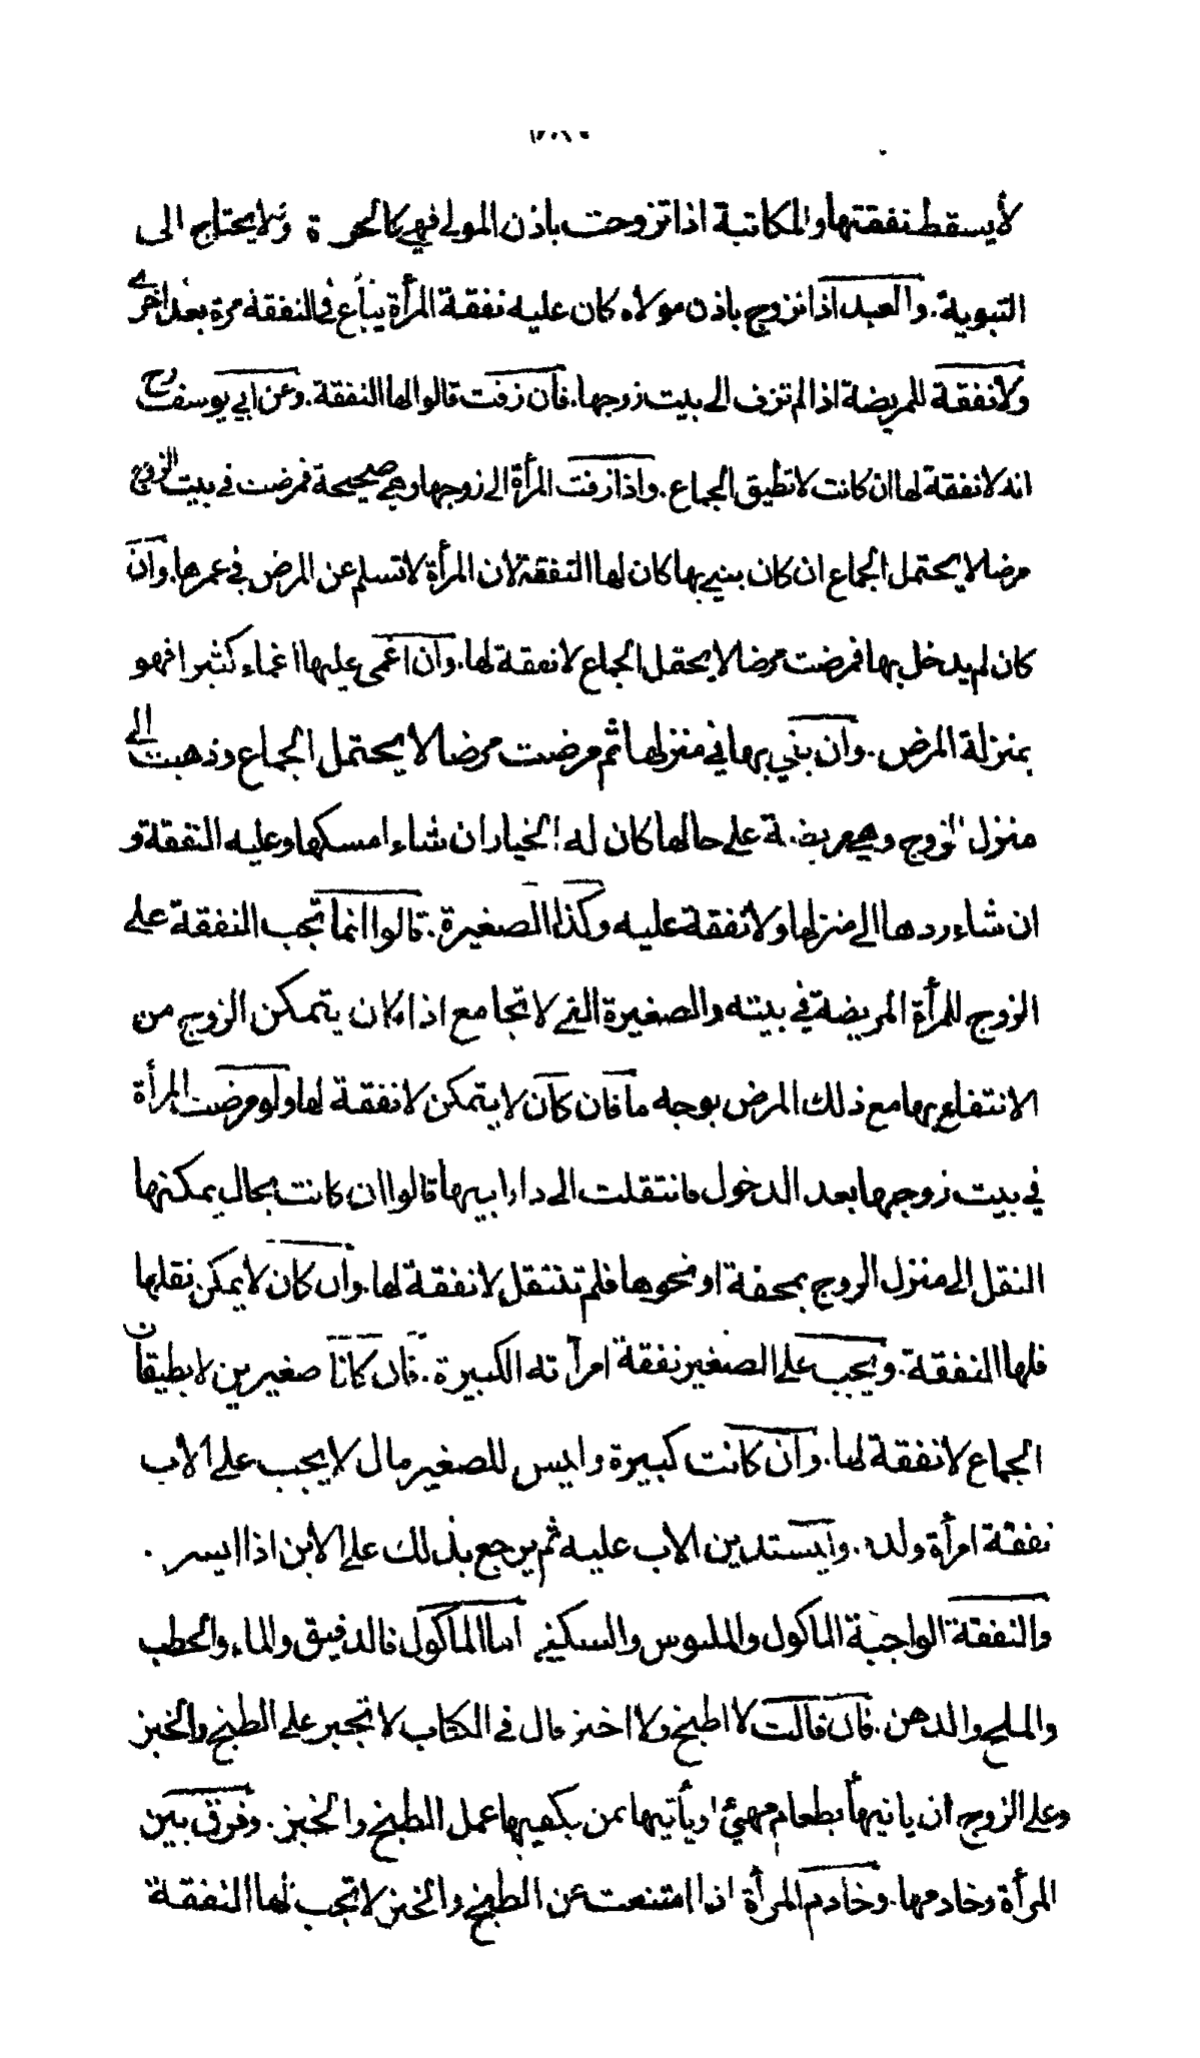 لا يسقط نفقتها والمكاتبة اذا تزوجت باذن المولى فهي كالحرة ولا يحتاج الى
التبوية . والعبد اذا تزوج باذن مولاه كان عليه نفقة المرأة يباع في النفقة مرة بعد اخرى
ولا نفقة للمريضة اذا لم تزف الى بيت زوجها . فان زفت قالوا لها النفقة . وعن ابي يوسف رح
انه لا نفقة لها ان كانت لا تطيق الجماع . واذا زفت المرأة الى زوجها وهي صحيحة فمرضت في بيت الزوج
مرضا لا يحتمل الجماع ان كان بنى بها كان لها النفقة لان المرأة لا تسلم عن المرض في عمرها . وان
كان لم يدخل بها فمرضت مرضا لا يحتمل الجماع لا نفقة لها . وان اغمى عليها اغماء كثيرا فهو
بمنزلة المرض . وان بني بها في منزلها ثم مرضت مرضا لا يحتمل الجماع وذهبت الى
منزل الزوج وهي مريضة على حالها كان له الخيار ان شاء امسكها وعليه النفقة و
ان شاء ردها الى منزلها ولا نفقة عليه وكذا الصغيرة . قالوا انما تجب النفقة على
الزوج للمرأة المريضة في بيته والصغيرة التي لا تجامع اذا كان يتمكن الزوج من
الانتفاع بها مع ذلك المرض بوجه ما فان كان لا يتمكن لا نفقة لها ولو مرضت المرأة
في بيت زوجها بعد الدخول فانتقلت الى دار ابيها قالوا ان كانت بحال يمكنها
النقل الى منزل الزوج بمحفة او نحوها فلم تنتقل لا نفقة لها . وان كان لا يمكن نقلها
فلها النفقة . ويجب على الصغير نفقة امرأته الكبيرة . فان كانا صغيرين لا يطيقان
الجماع لا نفقة لها . وان كانت كبيرة وليس للصغير مال لا يجب على الاب
نفقة امرأة ولده . ويستدين الاب عليه ثم يرجع بذلك على الابن اذا ايسر .
والنفقة الواجبة الماكول والملبوس والسكنى اما الماكول فالدقيق والماء والحطب
والملح والدهن . فان قالت لا اطبخ ولا اخبز قال في الكتاب لا تجبر على الطبخ والخبز
وعلى الزوج ان يأتيها بطعام مهيئ او يأتيها بمن يكفيها عمل الطبخ والخبز . وفرق بين
المرأة وخادمها . وخادم المرأة اذا امتنعت عن الطبخ والخبز لا تجب لها النفقة